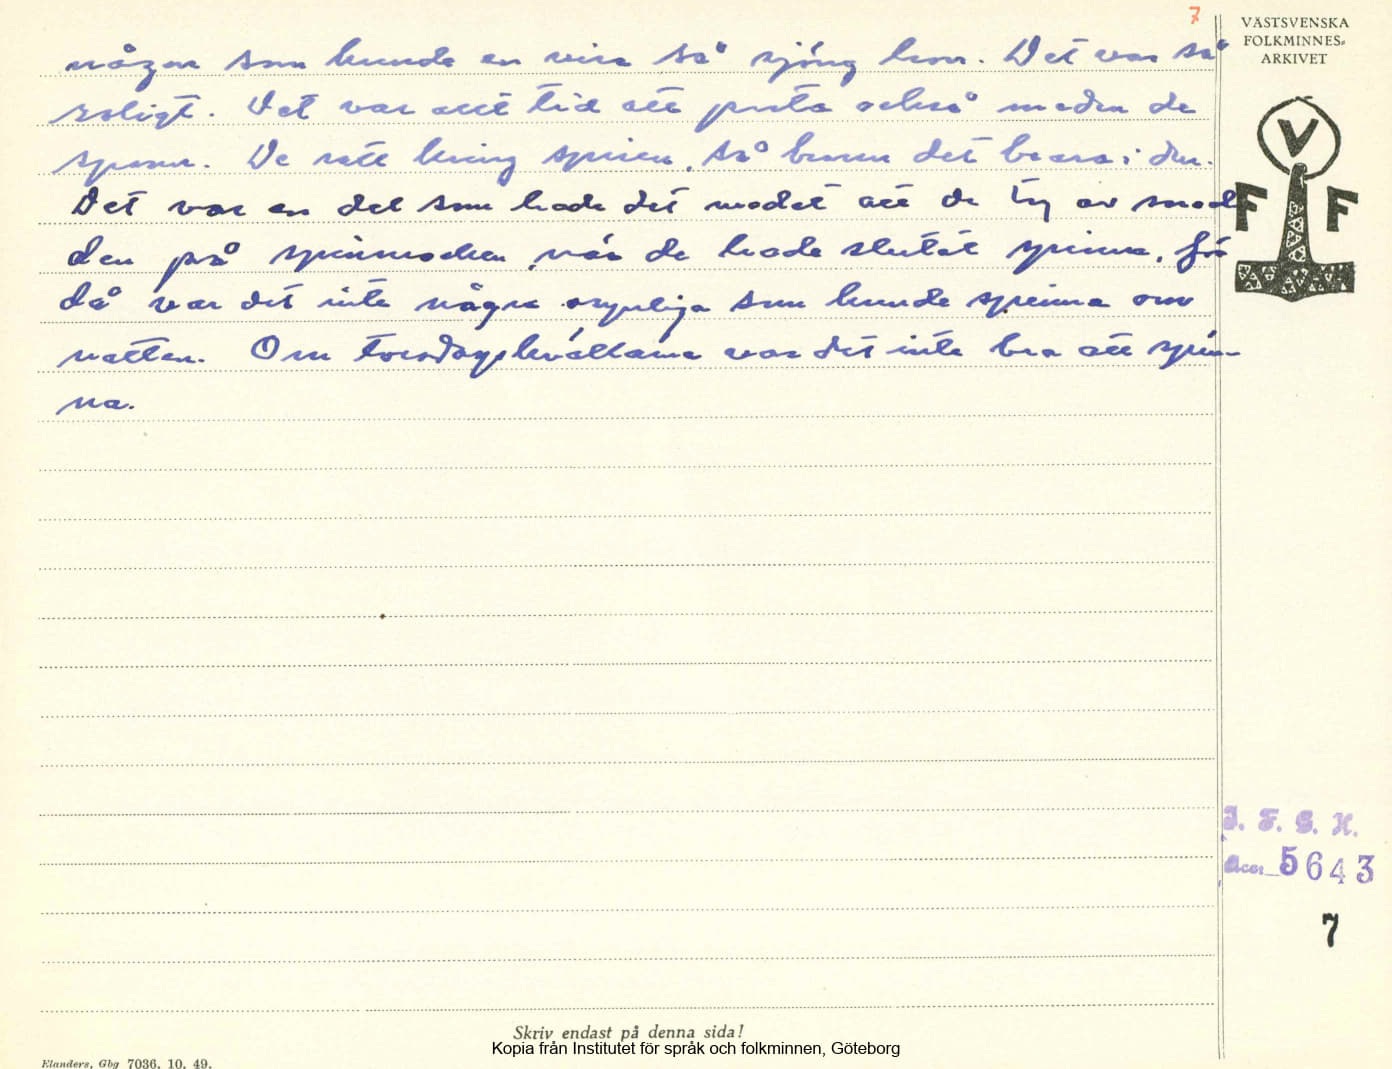 7
VÄSTSVENSKA
FOLKMINNES-
ARKIVET
någon som kunde en visa så sjöng hon. Det var så
roligt. Det var allt tid att prata också medan de
spann. De satt kring spisen, så brann det brasa i den.
Det var en del som hade det modet att de tog av snod-
den på spinnrocken, när de hade slutat spinna, för
då var det inte några osynliga som kunde spinna om
natten. Om torsdagskvällarna var det inte bra att spin-
na.
V
F F
I. F. G. H.
Acc. 5643
7
Skriv endast på denna sida!
Kopia från Institutet för språk och folkminnen, Göteborg
Elanders, Gbg 7036. 10. 49.